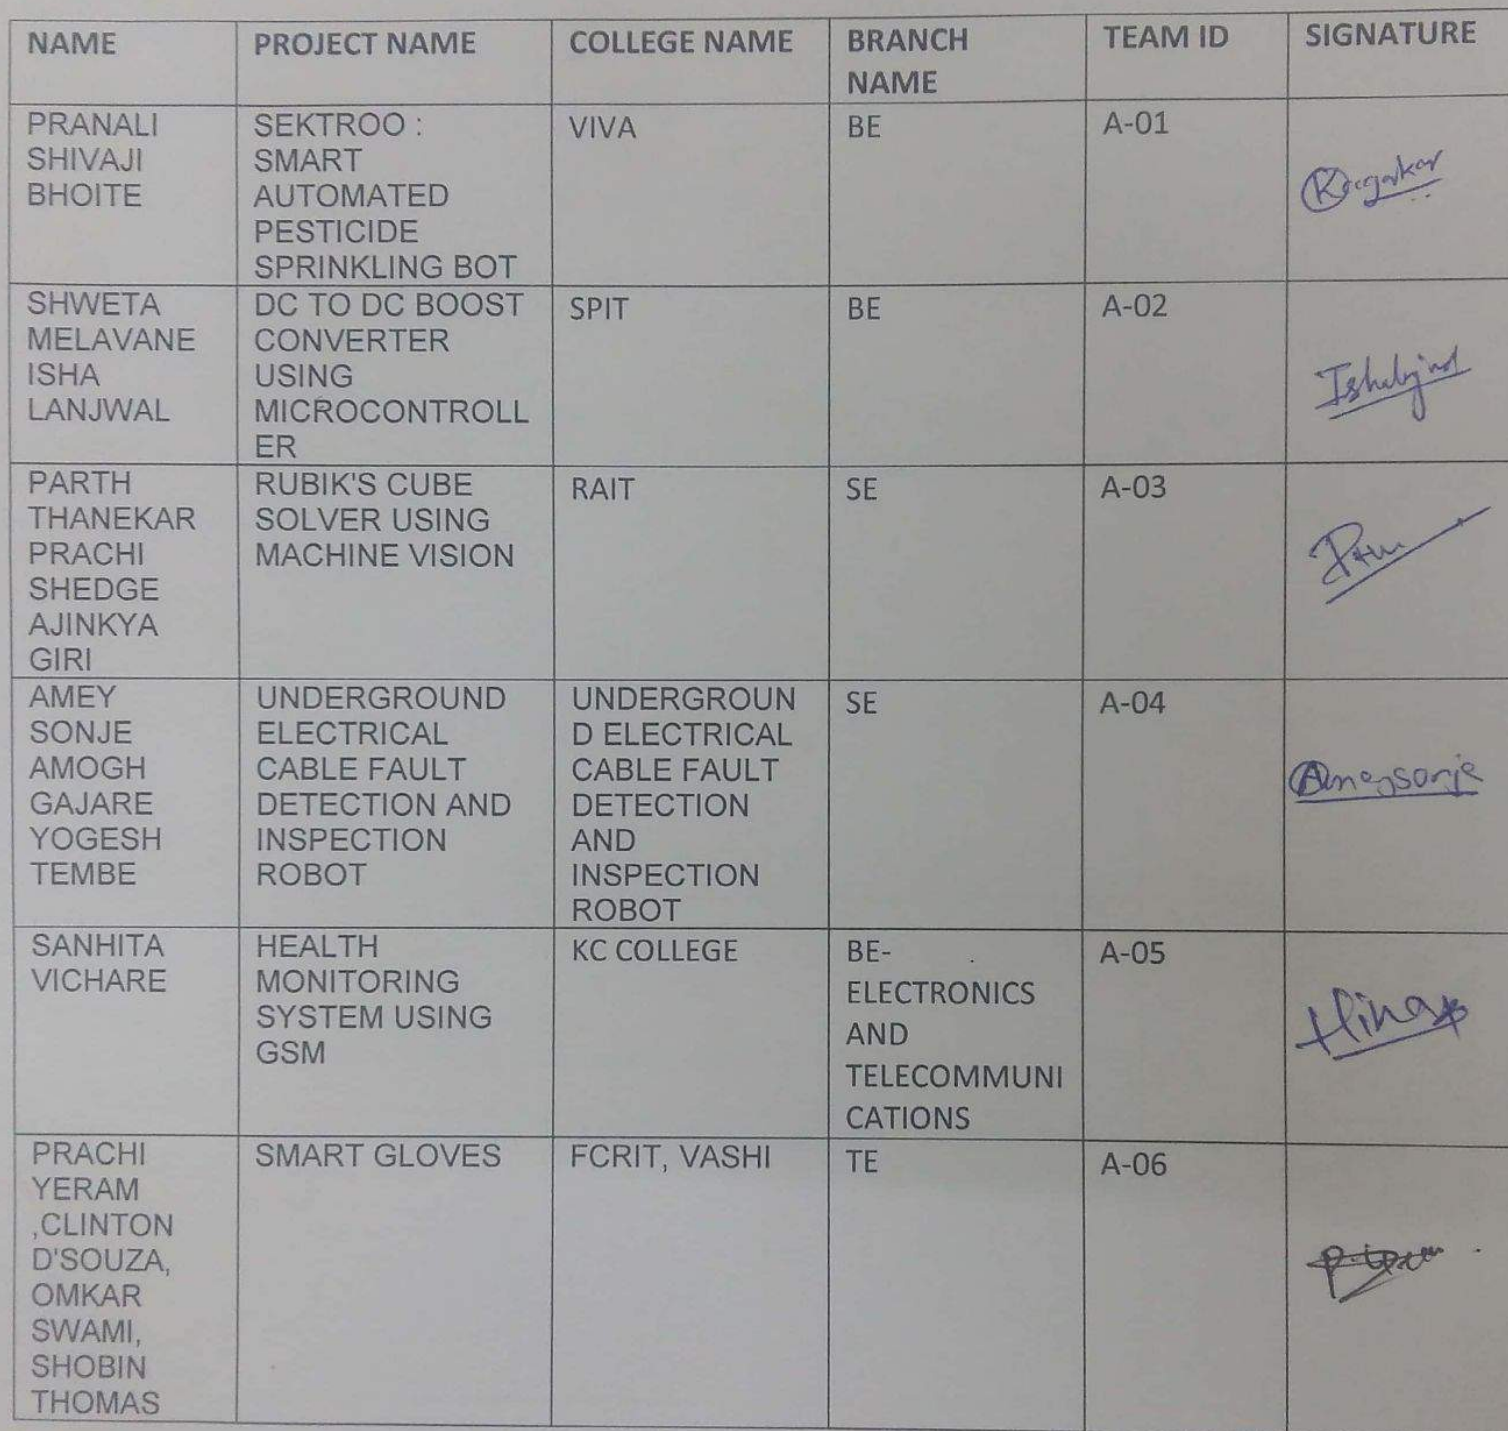 NAME
PROJECT NAME
COLLEGE NAME
BRANCH
NAME
TEAM ID
SIGNATURE
PRANALI
SHIVAJI
BHOITE
SEKTROO :
SMART
AUTOMATED
PESTICIDE
SPRINKLING BOT
VIVA
BE
A-01
SHWETA
MELAVANE
ISHA
LANJWAL
DC TO DC BOOST
CONVERTER
USING
MICROCONTROLL
ER
SPIT
BE
A-02
PARTH
THANEKAR
PRACHI
SHEDGE
AJINKYA
GIRI
RUBIK'S CUBE
SOLVER USING
MACHINE VISION
RAIT
SE
A-03
AMEY
SONJE
AMOGH
GAJARE
YOGESH
TEMBE
UNDERGROUND
ELECTRICAL
CABLE FAULT
DETECTION AND
INSPECTION
ROBOT
UNDERGROUN
D ELECTRICAL
CABLE FAULT
DETECTION
AND
INSPECTION
ROBOT
SE
A-04
Ameysonje
SANHITA
VICHARE
HEALTH
MONITORING
SYSTEM USING
GSM
KC COLLEGE
BE-
ELECTRONICS
AND
TELECOMMUNI
CATIONS
A-05
PRACHI
YERAM
,CLINTON
D'SOUZA,
OMKAR
SWAMI,
SHOBIN
THOMAS
SMART GLOVES
FCRIT, VASHI
TE
A-06